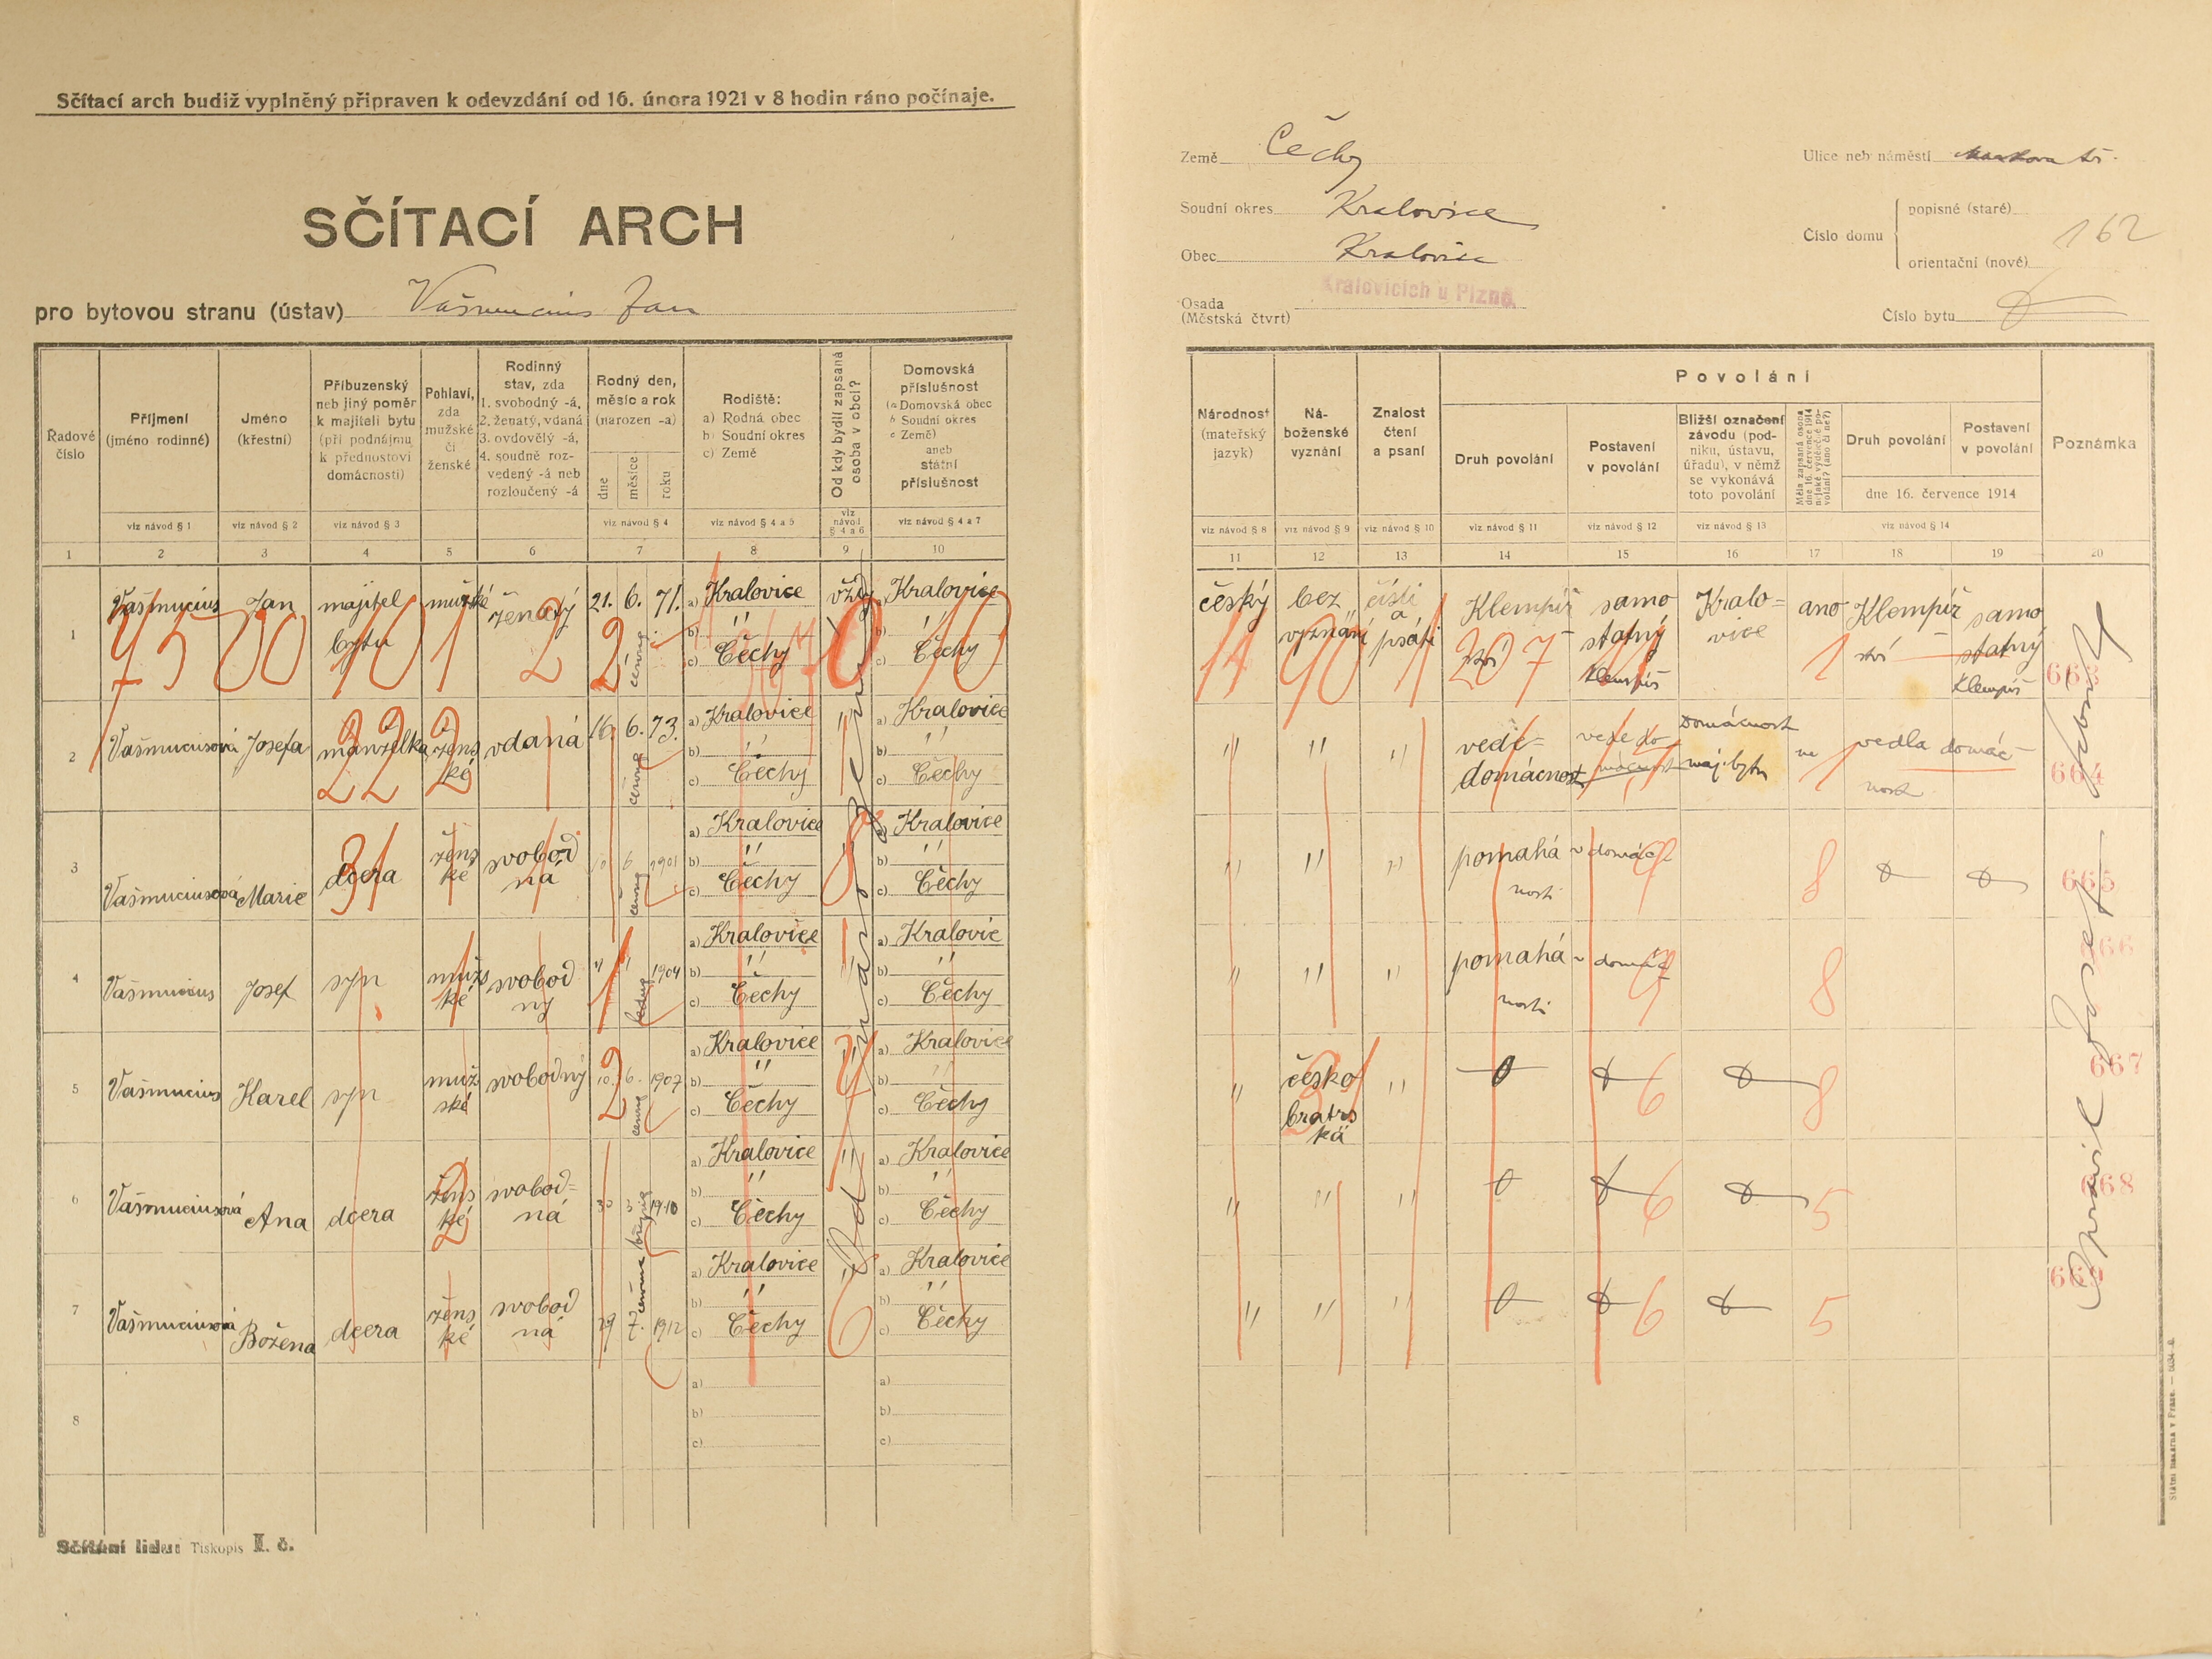 Sčítací arch budiž vyplněný připraven k odevzdání od 16. února 1921 v 8 hodin ráno počínaje.
SČÍTACÍ ARCH
pro bytovou stranu (ústav) Vašmucius Jan
Země Čechy
Soudní okres Kralovice
Obec Kralovice
Kralovicích u Plzně.
Osada
(Městská čtvrt)
Ulice neb náměstí tř.
Číslo domu
popisné (staré)
162
orientační (nové)
Číslo bytu
Řadové číslo
Příjmení (jméno rodinné)
Jméno (křestní)
Příbuzenský neb jiný poměr k majiteli bytu (při podnájmu k přednostovi domácnosti)
Pohlaví, zda mužské či ženské
Rodinný stav, zda 1. svobodný -á, 2. ženatý, vdaná 3. ovdovělý -á, 4. soudně rozvedený -á neb rozloučený -á
Rodný den, měsíc a rok (narozen -a)
dne měsíce roku
Rodiště: a) Rodná obec b) Soudní okres c) Země
Od kdy bydlí zapsaná osoba v obci?
Domovská příslušnost (a Domovská obec b Soudní okres c Země) aneb státní příslušnost
viz návod § 1 viz návod § 2 viz návod § 3 viz návod § 4 viz návod § 4 a 5 viz návod § 4 a 6 viz návod § 4 a 7
1 2 3 4 5 6 7 8 9 10
Národnost (mateřský jazyk)
Náboženské vyznání
Znalost čtení a psaní
Povolání
Druh povolání
Postavení v povolání
Bližší označení závodu (podniku, ústavu, úřadu), v němž se vykonává toto povolání
Měla zapsaná osoba dne 16. července 1914 nějaké výdělečné povolání? (ano či ne?)
Druh povolání
Postavení v povolání
dne 16. července 1914
Poznámka
viz návod § 8 viz návod § 9 viz návod § 10 viz návod § 11 viz návod § 12 viz návod § 13 viz návod § 14
11 12 13 14 15 16 17 18 19 20
1 Vašmucius Jan majitel bytu mužské ženatý 21. 6. 71. červnu a) Kralovice b) " c) Čechy vždy a) Kralovice b) " c) Čechy
český bez vyznání čísti a psáti Klempíř ství samostatný klempíř Kralovice ano Klempíř ství samostatný klempíř 663
2 Vašmuciusová Josefa manželka ženské vdaná 16. 6. 73. června a) Kralovice b) " c) Čechy " a) Kralovice b) " c) Čechy
" " " vede domácnost vede domácnost Domácnost maj. bytu ne vedla domácnost 664
3 Vašmuciusová Marie dcera ženské svobodná 6 1901 a) Kralovice b) " c) Čechy a) Kralovice b) " c) Čechy
" " " pomahá v domácnosti 665
4 Vašmucius Josef syn mužské svobodný " " 1904 a) Kralovice b) " c) Čechy " a) Kralovic b) " c) Čechy
" " " pomahá v domácnosti 666
5 Vašmucius Karel syn mužské svobodný 10. 6. 1907 a) Kralovice b) " c) Čechy " a) Kralovice b) " c) Čechy
" českobratrská " 667
6 Vašmuciusová Ana dcera ženské svobodná 30 3 1910 a) Kralovice b) " c) Čechy " a) Kralovice b) " c) Čechy
" " " 668
7 Vašmuciusová Božena dcera ženské svobodná 29 7. 1912 a) Kralovice b) " c) Čechy " a) Kralovice b) " c) Čechy
" " " 669
8 a) b) c) a) b) c)
Od narození
Opravil Josef
Sčítání lidu: Tiskopis I. č.
Státní tiskárna v Praze.